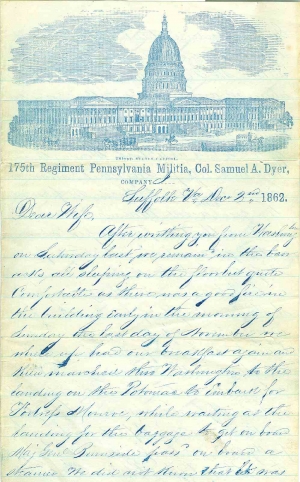 UNITED STATES CAPITOL.
175th Regiment Pennsylvania Militia, Col. Samuel A. Dyer,
COMPANY
Suffolk Va Dec 2nd, 1862.
Dear Wife,
After writing you from
on Saturday last we remain in the
all sleeping on the floor but quite
Comfortable as there was a good fire in
the building early in the morning of
Sunday the last day of November we
up had our breakfast again and
then marched thro Washington to the
landing on the Potomac to embark for
Fortress Monroe, while waiting at the
landing for the baggage to get on board
Burnside pass on board a
steamer We did not know that it was